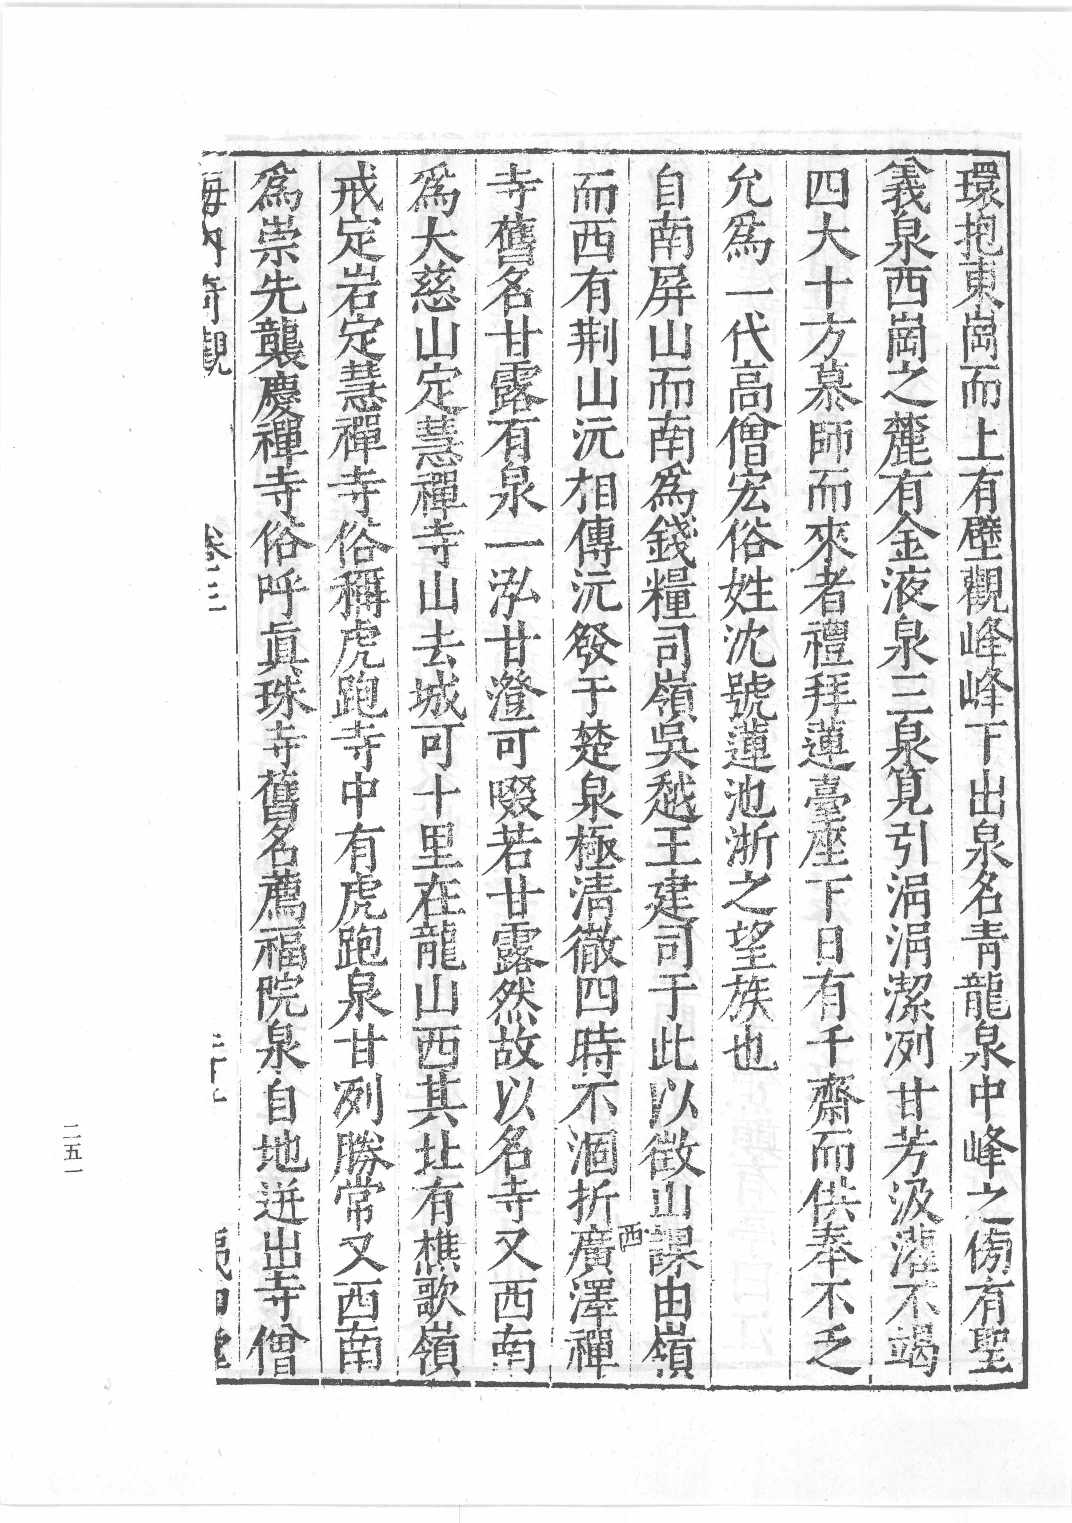 環抱東崗而上有壁觀峰峰下出泉名青龍泉中峰之傍有聖
義泉西崗之麓有金液泉三泉筧引涓涓潔冽甘芳汲灌不竭
四大十方慕師而來者禮拜蓮臺座下日有千齋而供奉不乏
允爲一代高僧宏俗姓沈號蓮池浙之望族也
自南屏山而南爲錢糧司嶺吳越王建司于此以徵山課由嶺
而西有荆山沅相傳沅發于楚泉極清徹四時不涸折西廣澤禪
寺舊名甘露有泉一泓甘澄可啜若甘露然故以名寺又西南
爲大慈山定慧禪寺山去城可十里在龍山西其址有樵歌嶺
戒定岩定慧禪寺俗稱虎跑寺中有虎跑泉甘冽勝常又西南
爲崇先襲慶禪寺俗呼眞珠寺舊名薦福院泉自地迸出寺僧
海內奇觀
卷三
夷白堂
二五一